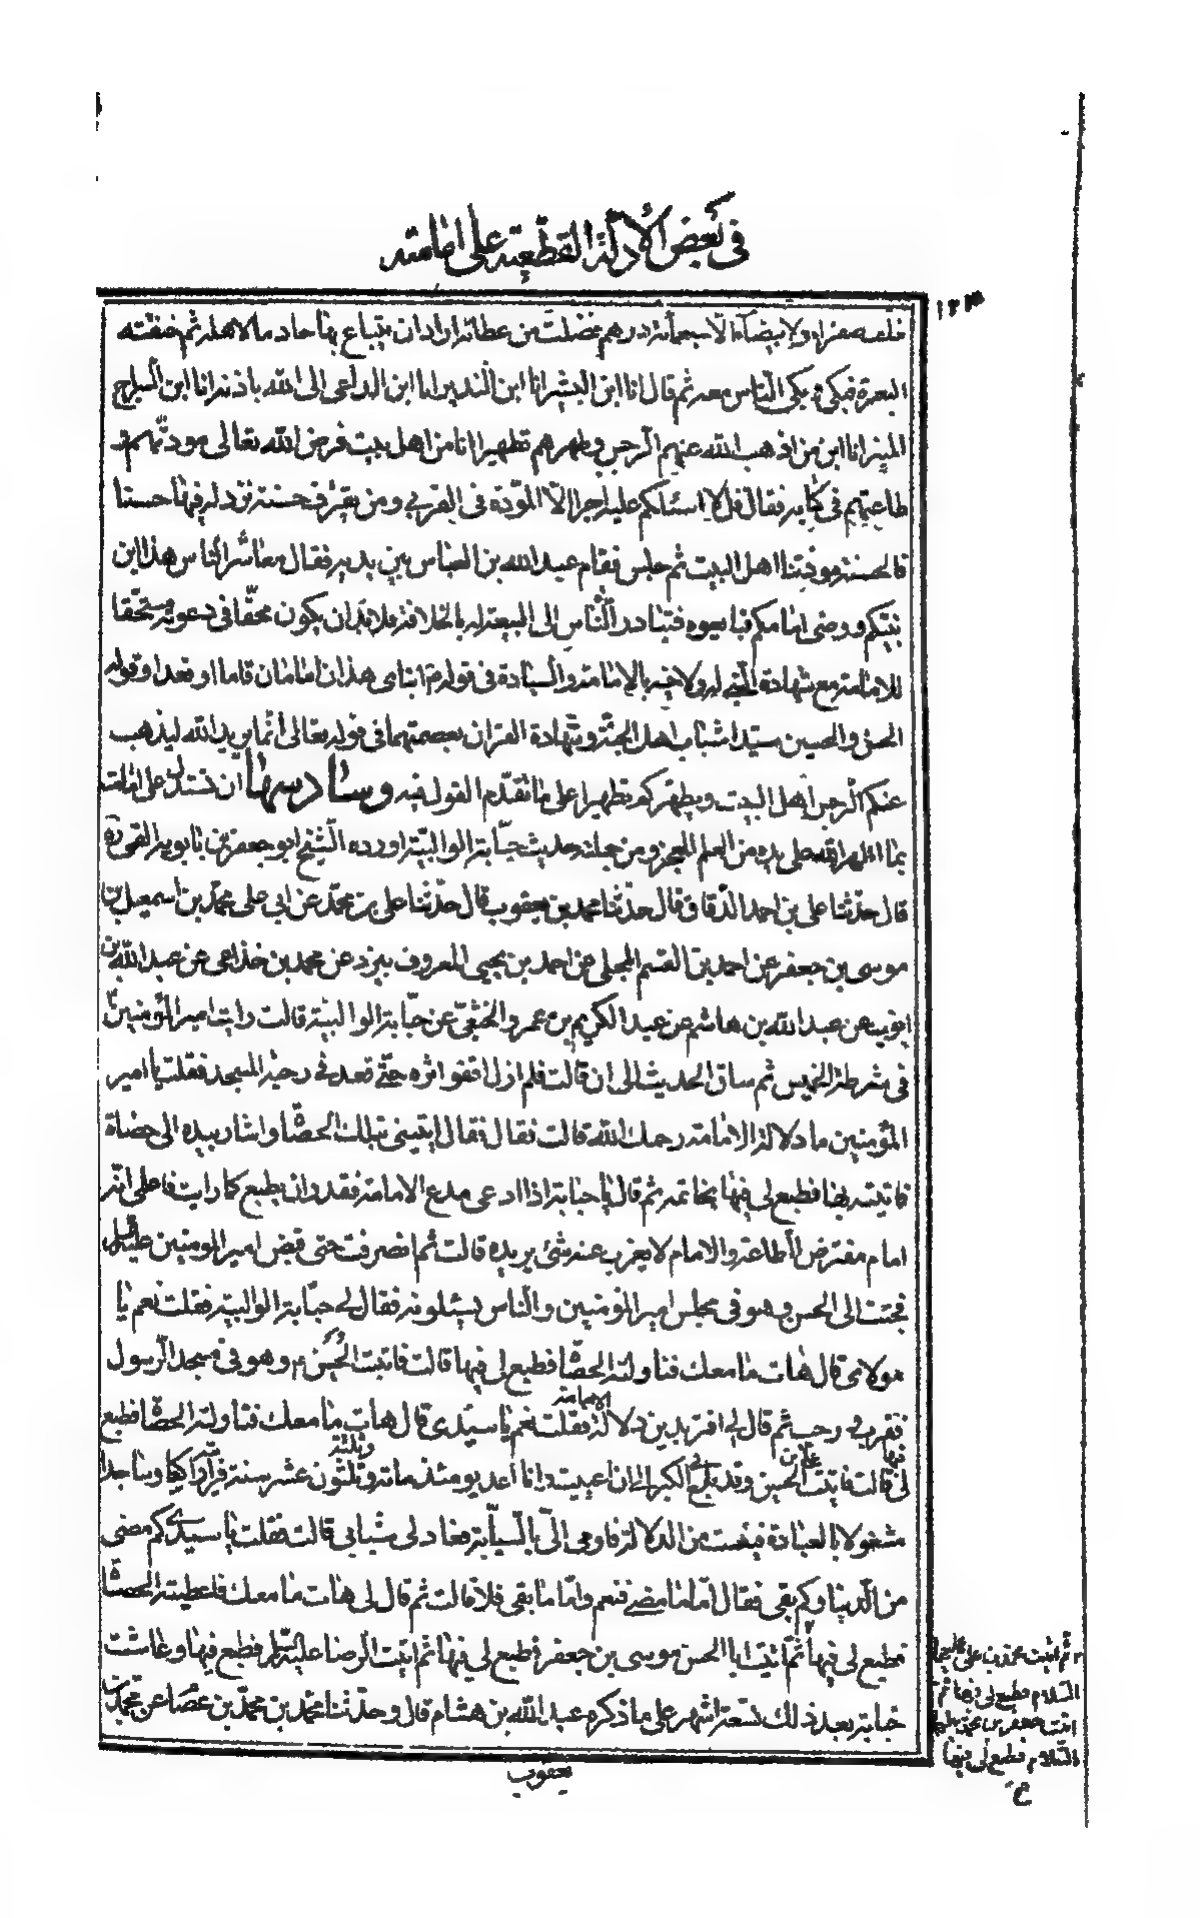 في بعض الأدلة القطعية على امامته
١٢٣
خلف صفراء ولا بيضاء الّا سبعمائة درهم فضلت من عطائه اراد ان يبتاع بها خادما لاهله ثم خنقته
العبرة فبكى وبكى النّاس معه ثم قال انا ابن البشير انا ابن النذير انا ابن الداعي الى الله باذنه انا ابن السراج
المنير انا ابن من اذهب الله عنهم الرجس وطهرهم تطهيرا انا من اهل بيت فرض الله تعالى مودتهم و
طاعتهم في كتابه فقال قل لا اسئلكم عليه اجرا الّا المودّة في القربى ومن يقترف حسنة نزد له فيها حسنا
فالحسنة مودتنا اهل البيت ثم جلس فقام عبد الله بن العباس بين يديه فقال معاشر الناس هذا ابن
نبيكم ووصي امامكم فبايعوه فتبادر النّاس الى البيعة له بالخلافة فلا بدّ ان يكون محقّا في دعوته مستحقّا
للامامة مع شهادة النبي له ولاخيه بالامامة والسيادة في قوله ابناى هذان امامان قاما او قعدا وقوله
الحسن والحسين سيدا شباب اهل الجنّة وشهادة القران بعصمتهما في قوله تعالى انّما يريد الله ليذهب
عنكم الرجس اهل البيت ويطهركم تطهيرا على ما تقدّم القول فيه وسادسها ان نستدل على امامته
بما اظهر الله على يده من العلم المعجز ومن جملته حديث حبّابة الوالبيّة اورده الشيخ ابو جعفر بن بابويه القمي ره
قال حدّثنا على بن احمد الدّقاق قال حدّثنا محمد بن يعقوب قال حدّثنا على بن محمّد عن ابي على محمّد بن اسمعيل بن
موسى بن جعفر عن احمد بن القسم العجلى عن احمد بن يحيى المعروف ببرد عن محمد بن خداهى عن عبد الله بن
ايوب عن عبد الله بن هاشم عن عبد الكريم بن عمرو الخثعمي عن حبّابة الوالبيّة قالت رايت امير المؤمنين ع
في شرطة الخميس ثم ساق الحديث الى ان قالت فلم ازل اقفو اثره حتّى قعد في رحبة المسجد فقلت يا امير
المؤمنين ما دلالة الامامة رحمك الله قالت فقال ايتيني بتلك الحصاة واشار بيده الى حصاة
فاتيته بها فطبع لى فيها بخاتمه ثم قال يا حبابة اذا ادعى مدع الامامة فقدر ان يطبع كما رايت فاعلمي انّه
امام مفترض الطاعة والامام لا يعزب عنه شئ يريده قالت ثم انصرفت حتى قبض امير المومنين عليه السلم
فجئت الى الحسن وهو في مجلس امير المؤمنين والناس يسئلونه فقال لي حبّابة الوالبيّة فقلت نعم يا
مولاى قال هات ما معك فناولته الحصاة فطبع لى فيها قالت فاتيت الحسين وهو في مسجد الرسول
فقرب ورحب ثم قال لي اتريدين دلالة الامامة فقلت نعم يا سيدى قال هات ما معك فناولته الحصاة فطبع
لى فيها قالت فاتيت على بن الحسين وقد بلغ بي الكبر الى ان اعييت وانا اعد يومئذ مائة وثلثة وثلثون عشر سنة فرايته راكعا وساجدا
مشغولا بالعبادة فيئست من الدلالة فاومى الىّ بالسّبّابة فعاد لى شبابي قالت فقلت يا سيدي كم مضى
من الدّنيا وكم بقى فقال امّا ما مضى فنعم وامّا ما بقى فلا قالت ثم قال لى هات ما معك فاعطيته الحصاة
فطبع لي فيها ثمّ اتيت ابا الحسن موسى بن جعفر فطبع لي فيها ثم اتيت الرضا عليه السّلم فطبع فيها وعاشت
حبابة بعد ذلك تسعة اشهر على ما ذكره عبد الله بن هشام قال وحدّثنا محمّد بن محمّد بن عصام عن محمّد بن
ثم اتيت محمد بن على عليهما
السّلام فطبع لى فيها ثم
اتيت جعفر بن محمد عليهما
السّلام فطبع لى فيها
ع
يعقوب